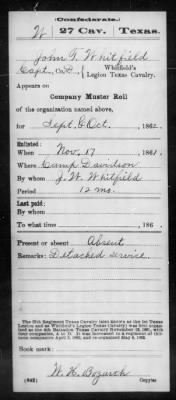 (Confederate.)
W 27 Cav. Texas.
John T. Whitfield
Capt., Co. , Whitfield's
Legion Texas Cavalry.
Appears on
Company Muster Roll
of the organization named above,
for Sept. & Oct., 1862.
Enlisted:
When Nov. 17, 1861.
Where Camp Davidson
By whom J. W. Whitfield
Period 12 mo.
Last paid:
By whom
To what time , 186 .
Present or absent Absent
Remarks: Detached service.
The 27th Regiment Texas Cavalry (also known as the 1st Texas
Legion and as Whitfield's Legion Texas Cavalry) was first organ-
ized as the 4th Battalion Texas Cavalry
companies, A to D. It was increased to a regiment of
companies April 2, 1862, and re-organized May 8, 1862.
Book mark:
W. H. Bozarth
(642) Copyist.